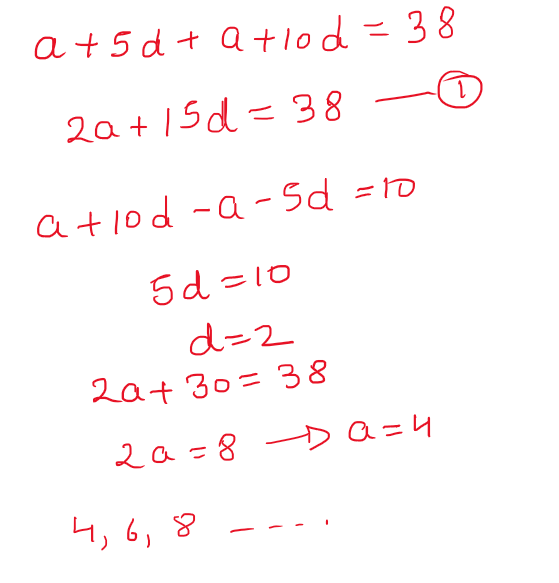 a + 5d + a + 10d = 38
2a + 15d = 38 — ①
a + 10d - a - 5d = 10
5d = 10
d = 2
2a + 30 = 38
2a = 8 → a = 4
4, 6, 8 - - - - .